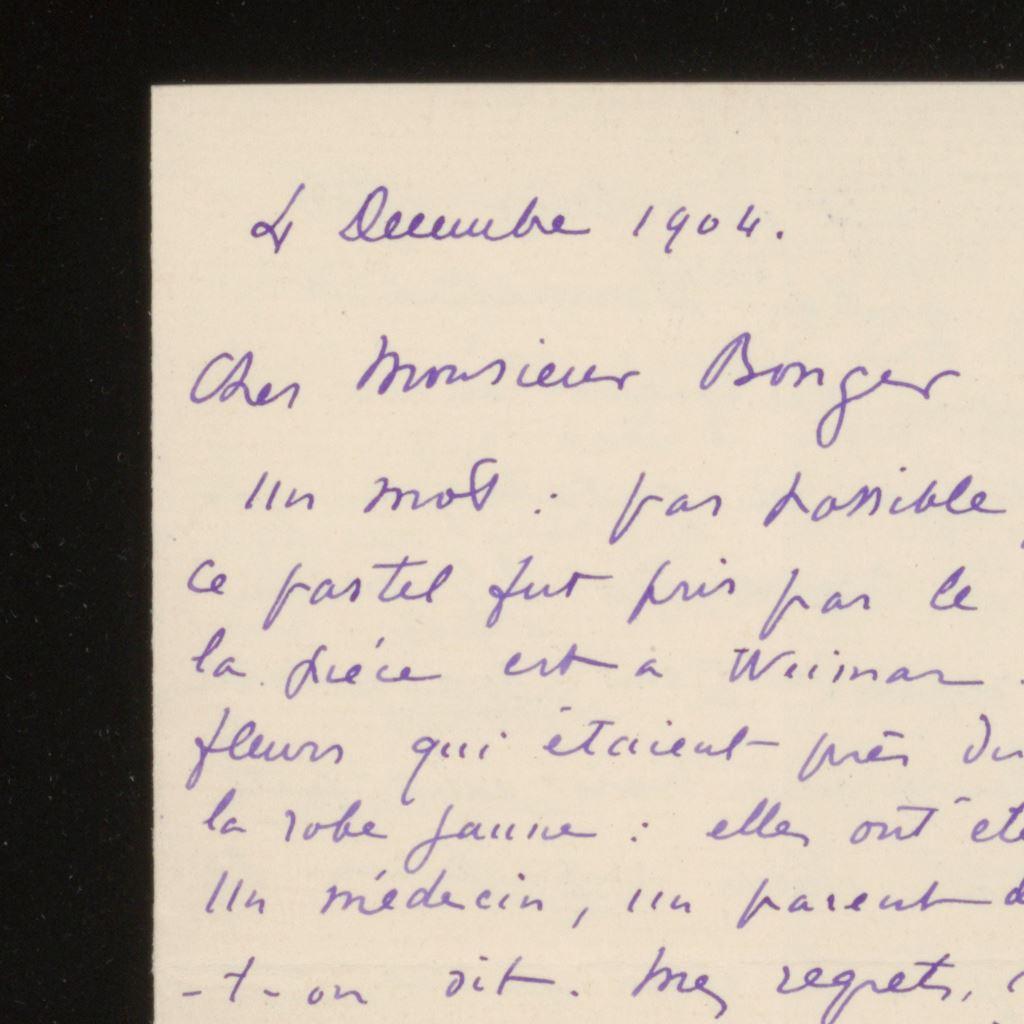 4 Decembre 1904.
Cher Monsieur Bonger
Un mot : pas possible,
ce pastel fut pris par le
la pièce est a Weimar.
fleurs qui étaient près du
la robe jaune : elles ont été
Un médecin, un parent d
-t-on dit. Mes regrets,